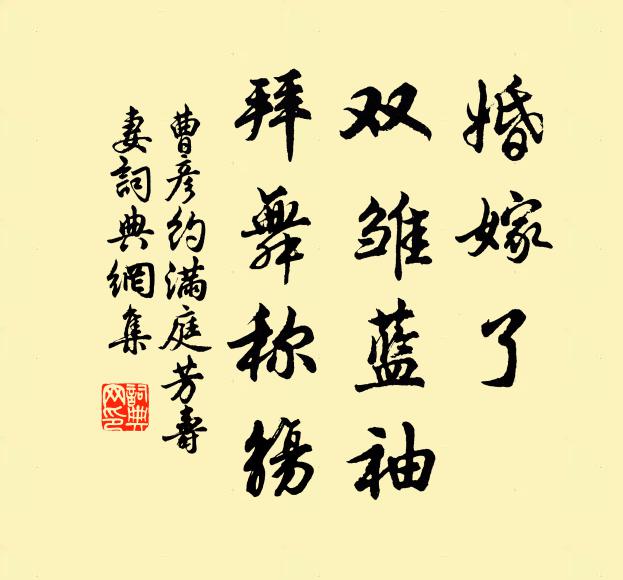 婚嫁了
双雏蓝袖
拜舞称觞
曹彦约满庭芳寿
妻詞典網集
詞典网印